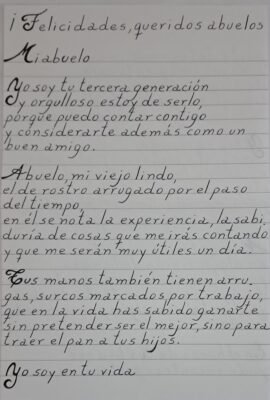 ¡Felicidades, queridos abuelos
Mi abuelo
Yo soy tu tercera generación
y orgulloso estoy de serlo,
porque puedo contar contigo
y considerarte además como un
buen amigo.
Abuelo, mi viejo lindo,
el de rostro arrugado por el paso
del tiempo,
en él se nota la experiencia, la sabi,
duría de cosas que me irás contando
y que me serán muy útiles un día.
Tus manos también tienen arru-
gas, surcos marcados por trabajo,
que en la vida has sabido ganarte
sin pretender ser el mejor, sino para
traer el pan a tus hijos.
Yo soy en tu vida